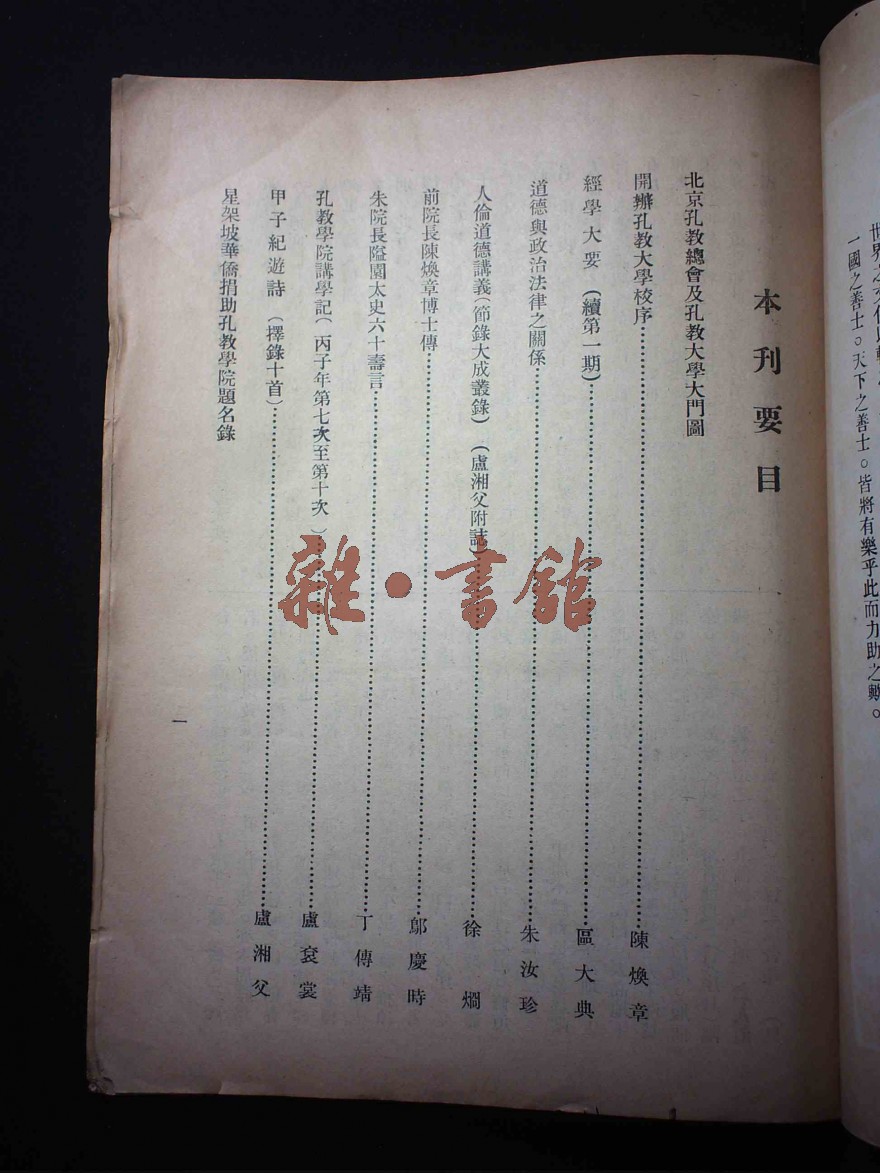 世界之文化以
一國之善士。天下之善士。皆將有樂乎此而力助之歟。
本刊要目
北京孔教總會及孔教大學大門圖
開辦孔教大學校序……陳煥章
經學大要(續第一期)……區大典
道德與政治法律之關係……朱汝珍
人倫道德講義(節錄大成叢錄)(盧湘父附誌)……徐燗
前院長陳煥章博士傳……鄔慶時
朱院長隘園太史六十壽言……丁傳靖
孔教學院講學記(丙子年第七次至第十次)……盧袞裳
甲子紀遊詩(擇錄十首)……盧湘父
星架坡華僑捐助孔教學院題名錄
一
雜·書館